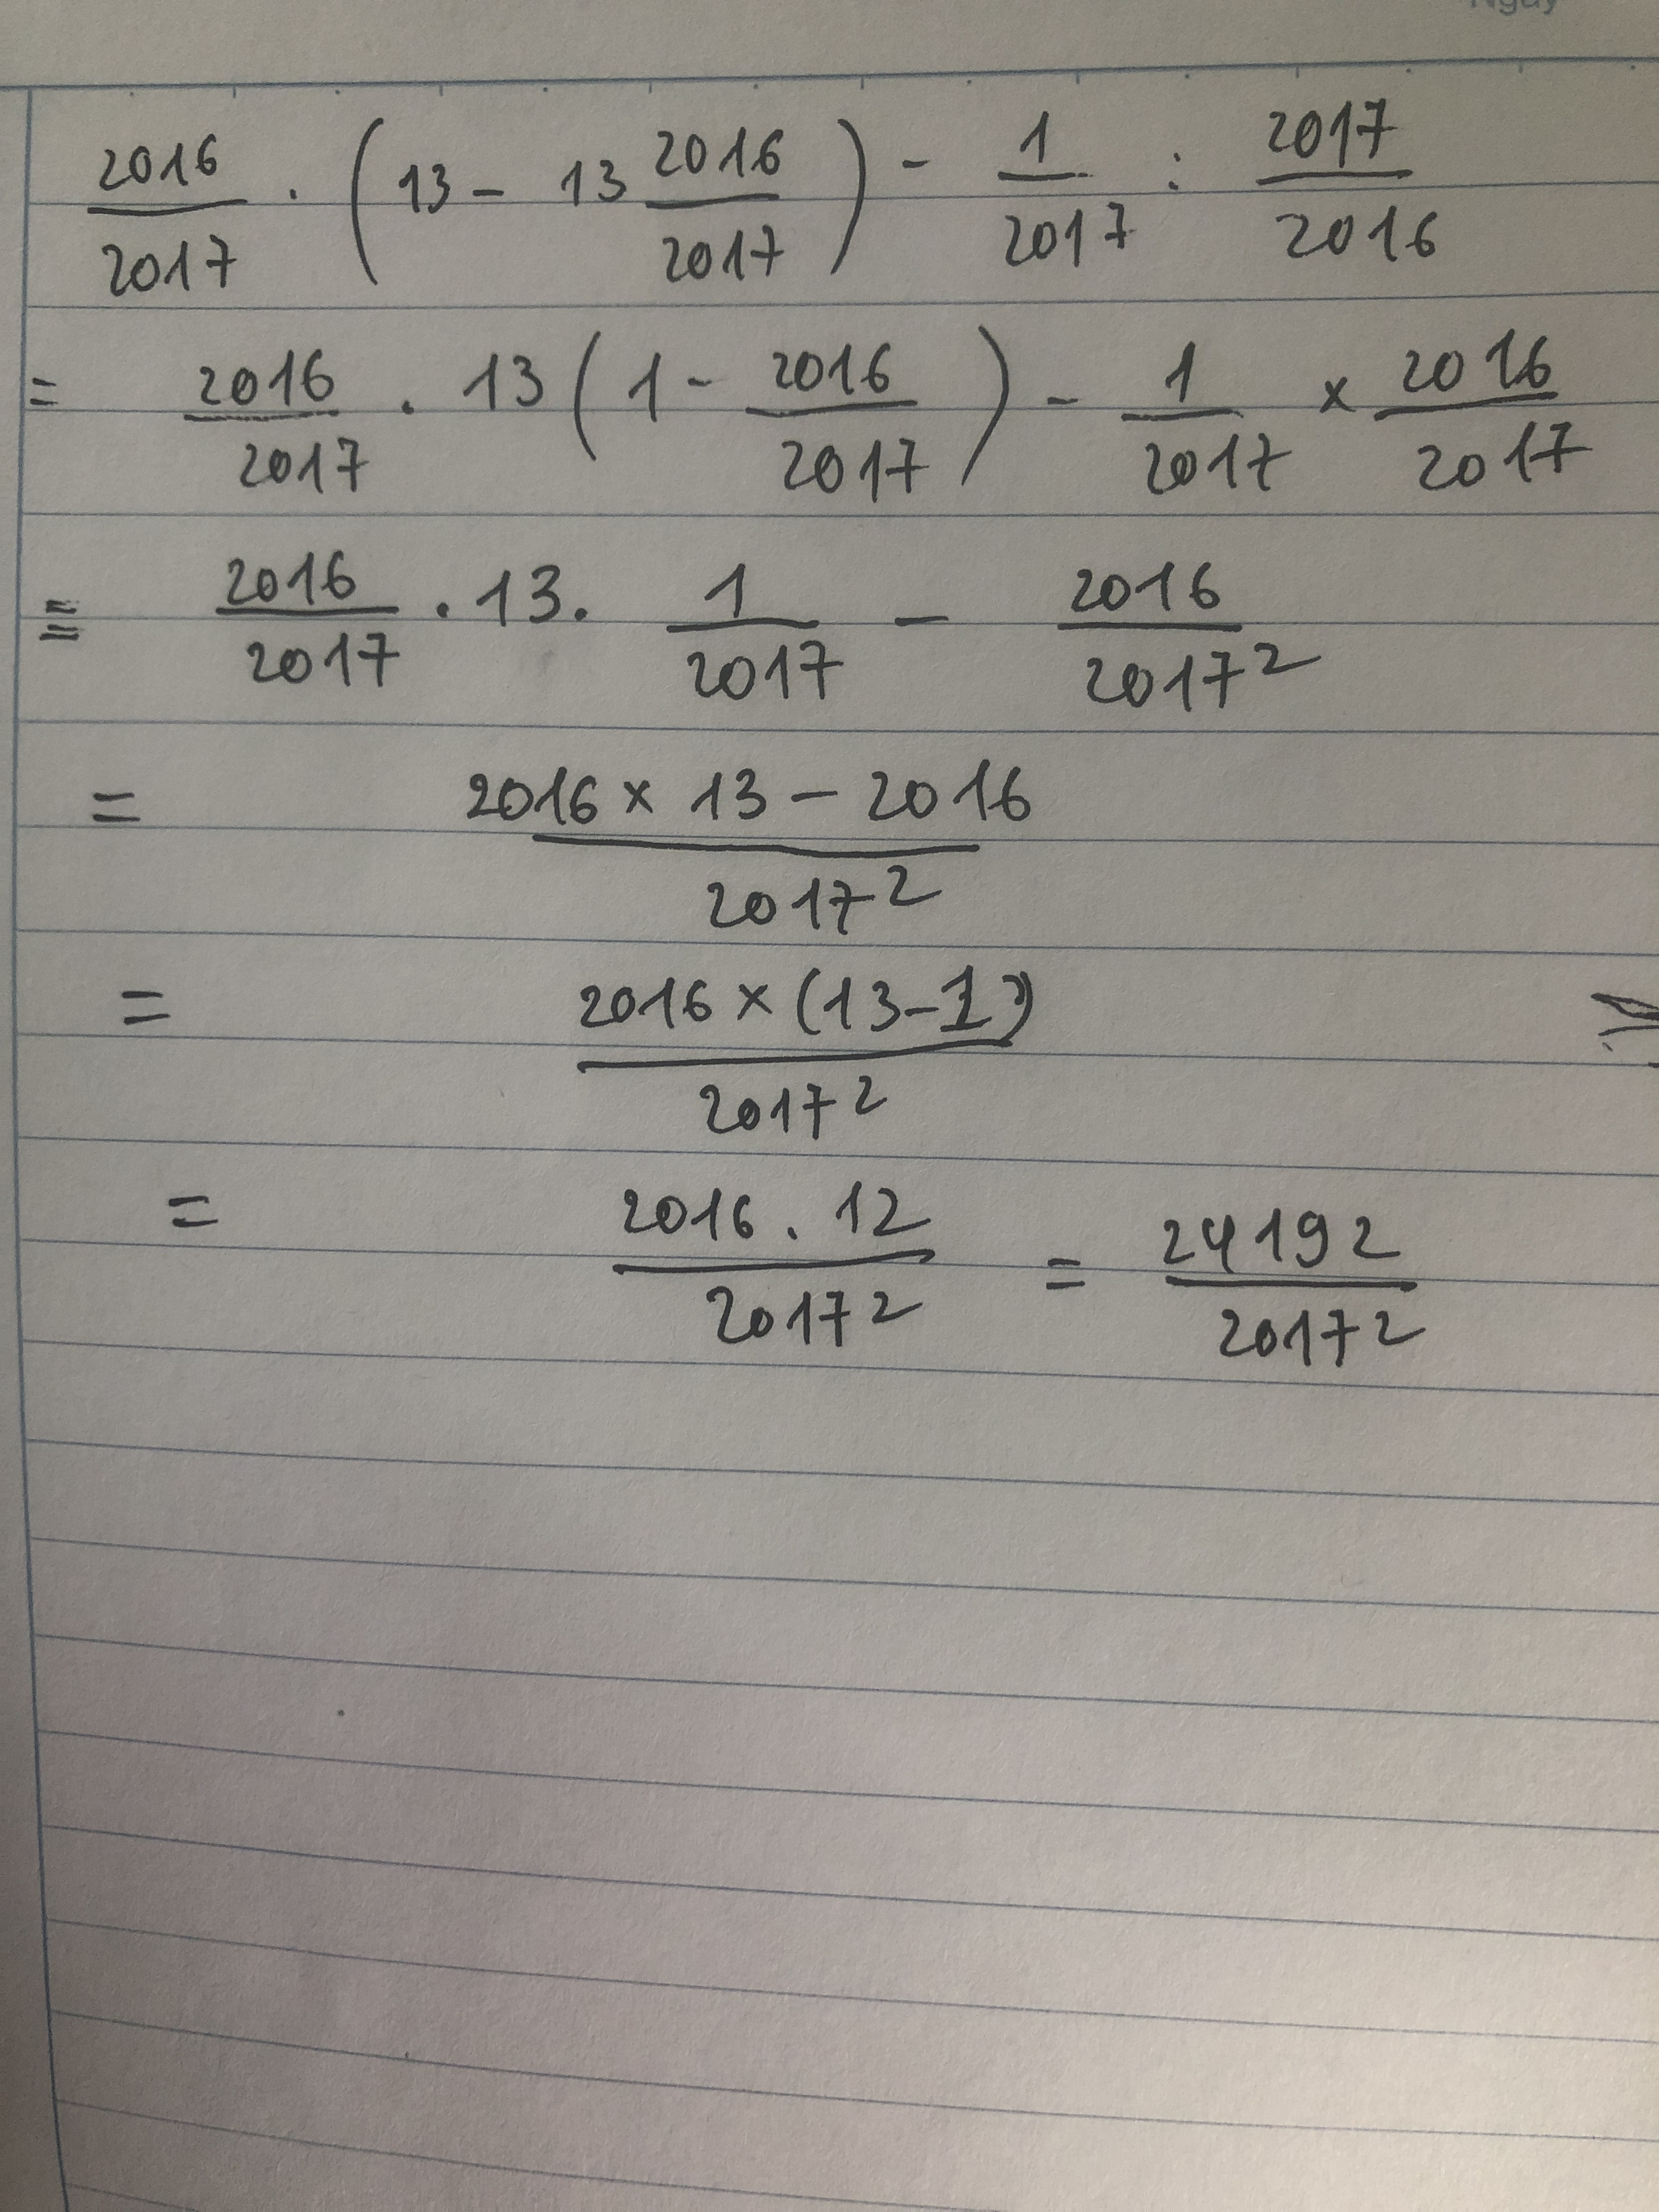 Ngày
2016/2017 . (13 - 13 2016/2017) - 1/2017 : 2017/2016
= 2016/2017 . 13 (1 - 2016/2017) - 1/2017 x 2016/2017
= 2016/2017 . 13 . 1/2017 - 2016/2017²
= (2016 x 13 - 2016)/2017²
= (2016 x (13-1))/2017²
= (2016 . 12)/2017² = 24192/2017²